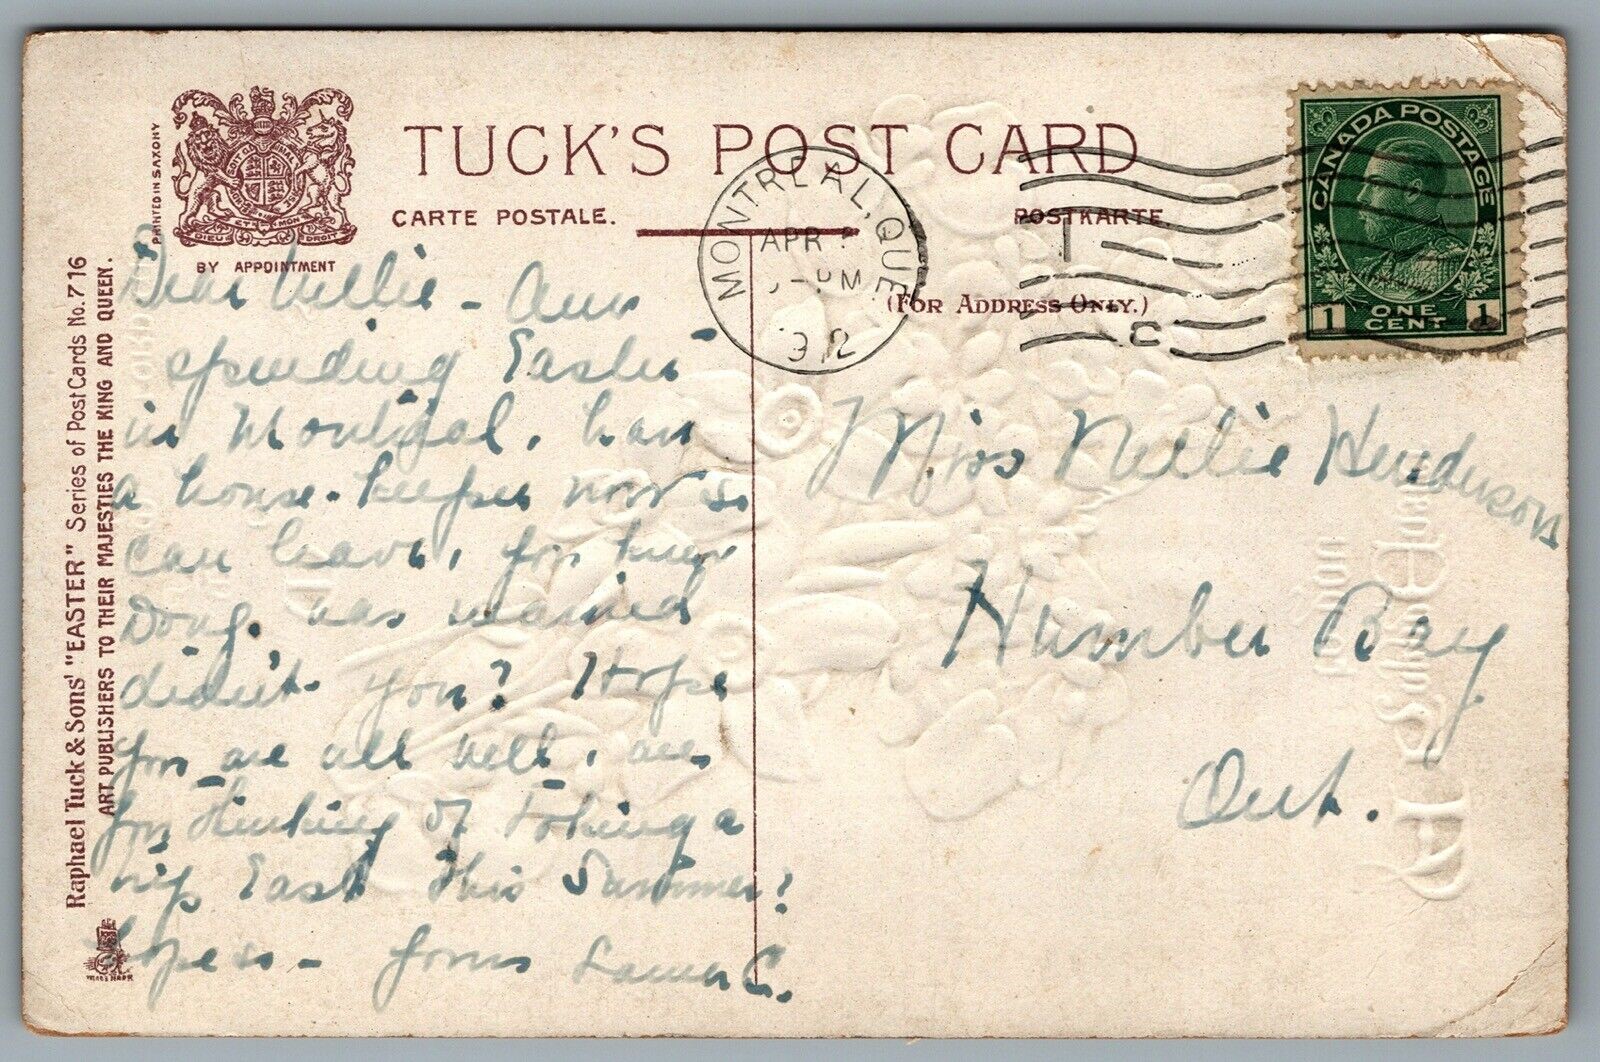 PRINTED IN SAXONY
DIEU ET MON DROIT
BY APPOINTMENT
TUCK'S POST CARD
CARTE POSTALE.
POSTKARTE
(FOR ADDRESS ONLY.)
Raphael Tuck & Sons' "EASTER" Series of Post Cards No. 716
ART PUBLISHERS TO THEIR MAJESTIES THE KING AND QUEEN.
MONTREAL, QUE
APR
PM
1912
C
CANADA POSTAGE
1 ONE CENT 1
Dear Nellie - Am
spending Easter
in Montreal, have
a house-keeper now so
can leave, you knew
Doug. was married
didn't you? Hope
you are all well, are
you thinking of taking a
trip East this Summer?
Yours
C.
Miss Nellie Henderson
Humber Bay
Ont.